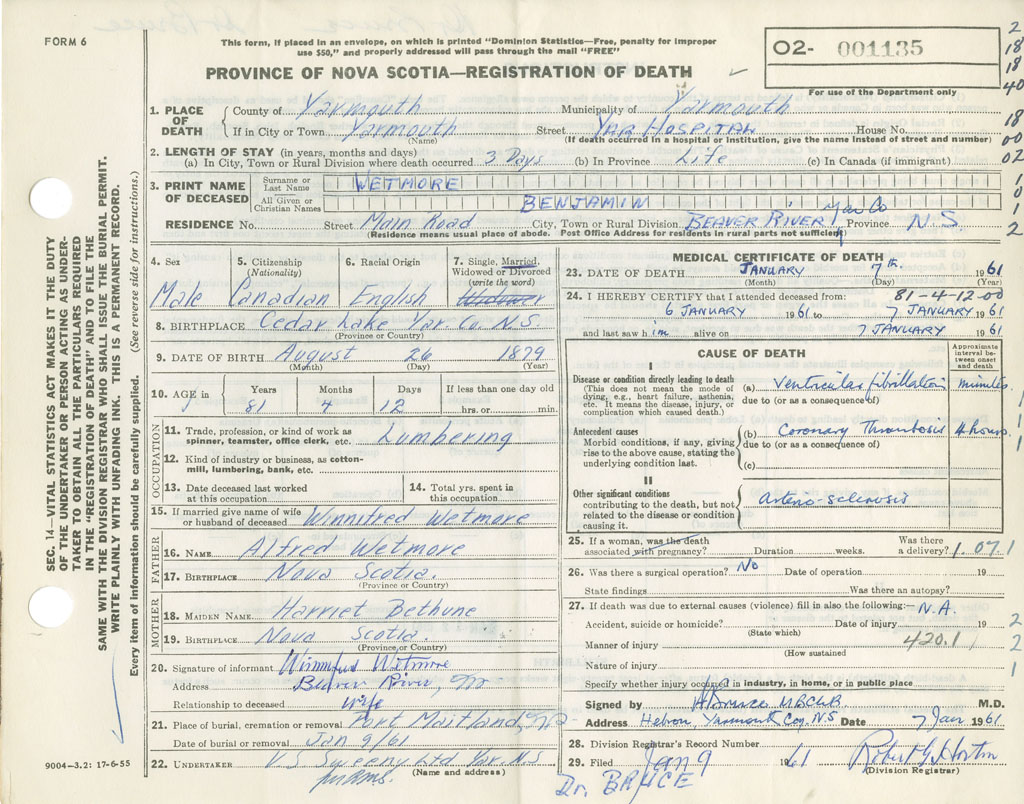 FORM 6
This form, if placed in an envelope, on which is printed "Dominion Statistics—Free, penalty for improper
use $50," and properly addressed will pass through the mail "FREE"
PROVINCE OF NOVA SCOTIA—REGISTRATION OF DEATH
O2- 001135
For use of the Department only
2
18
18
40
18
00
02
1
0
1
2
SEC. 14—VITAL STATISTICS ACT MAKES IT THE DUTY
OF THE UNDERTAKER OR PERSON ACTING AS UNDER-
TAKER TO OBTAIN ALL THE PARTICULARS REQUIRED
IN THE "REGISTRATION OF DEATH" AND TO FILE THE
SAME WITH THE DIVISION REGISTRAR WHO SHALL ISSUE THE BURIAL PERMIT.
WRITE PLAINLY WITH UNFADING INK. THIS IS A PERMANENT RECORD.
Every item of information should be carefully supplied. (See reverse side for instructions.)
1. PLACE OF DEATH
County of Yarmouth Municipality of Yarmouth
If in City or Town Yarmouth Street YAR HOSPITAL House No.
(Name) (If death occurred in a hospital or institution, give the name instead of street and number)
2. LENGTH OF STAY (in years, months and days)
(a) In City, Town or Rural Division where death occurred 3 Days (b) In Province Life (c) In Canada (if immigrant)
3. PRINT NAME OF DECEASED
Surname or Last Name WETMORE
All Given or Christian Names BENJAMIN
RESIDENCE No. Street Main Road City, Town or Rural Division BEAVER RIVER Yar Co Province N.S
(Residence means usual place of abode. Post Office Address for residents in rural parts not sufficient)
4. Sex
Male
5. Citizenship
(Nationality)
Canadian
6. Racial Origin
English
7. Single, Married,
Widowed or Divorced
(write the word)
Widower
8. BIRTHPLACE Cedar Lake Yar. Co. N.S.
(Province or Country)
9. DATE OF BIRTH August 26 1879
(Month) (Day) (Year)
10. AGE in Years Months Days If less than one day old
81 4 12 hrs. or min.
OCCUPATION
11. Trade, profession, or kind of work as
spinner, teamster, office clerk, etc. Lumbering
12. Kind of industry or business, as cotton-
mill, lumbering, bank, etc.
13. Date deceased last worked
at this occupation
14. Total yrs. spent in
this occupation
15. If married give name of wife
or husband of deceased Winnifred Wetmore
FATHER
16. NAME Alfred Wetmore
17. BIRTHPLACE Nova Scotia.
(Province or Country)
MOTHER
18. MAIDEN NAME Harriet Bethune
19. BIRTHPLACE Nova Scotia.
(Province or Country)
20. Signature of informant Winnifred Wetmore
Address Beaver River, NS
Relationship to deceased wife
21. Place of burial, cremation or removal Port Maitland, NS
Date of burial or removal Jan 9/61
22. UNDERTAKER V S Sweeny Ltd Yar. N.S
(Name and address)
9004—3.2: 17-6-55
MEDICAL CERTIFICATE OF DEATH
23. DATE OF DEATH JANUARY 7th 1961
(Month) (Day) (Year)
81-4-12-00
24. I HEREBY CERTIFY that I attended deceased from:
6 JANUARY 1961 to 7 JANUARY 1961
and last saw him alive on 7 JANUARY 1961
CAUSE OF DEATH
Approximate
interval be-
tween onset
and death
I
Disease or condition directly leading to death
(This does not mean the mode of
dying, e.g., heart failure, asthenia,
etc. It means the disease, injury, or
complication which caused death.)
(a) Ventricular fibrillation minutes
due to (or as a consequence of)
Antecedent causes
Morbid conditions, if any, giving
rise to the above cause, stating the
underlying condition last.
(b) Coronary Thrombosis 4 hours
due to (or as a consequence of)
(c)
II
Other significant conditions
contributing to the death, but not
related to the disease or condition
causing it.
Arterio-sclerosis
25. If a woman, was the death
associated with pregnancy? Duration weeks. Was there
a delivery? 1.07.1
26. Was there a surgical operation? No Date of operation 19
State findings Was there an autopsy?
27. If death was due to external causes (violence) fill in also the following:— N.A.
Accident, suicide or homicide? Date of injury 19
(State which)
Manner of injury 420.1
(How sustained
Nature of injury
2
2
1
Specify whether injury occurred in industry, in home, or in public place
Signed by M.D.
Address Hebron Yarmouth Coy, NS Date 7 Jan 1961
28. Division Registrar's Record Number
29. Filed Jan 9 1961 Robert G. Horton
(Division Registrar)
Dr. BRUCE